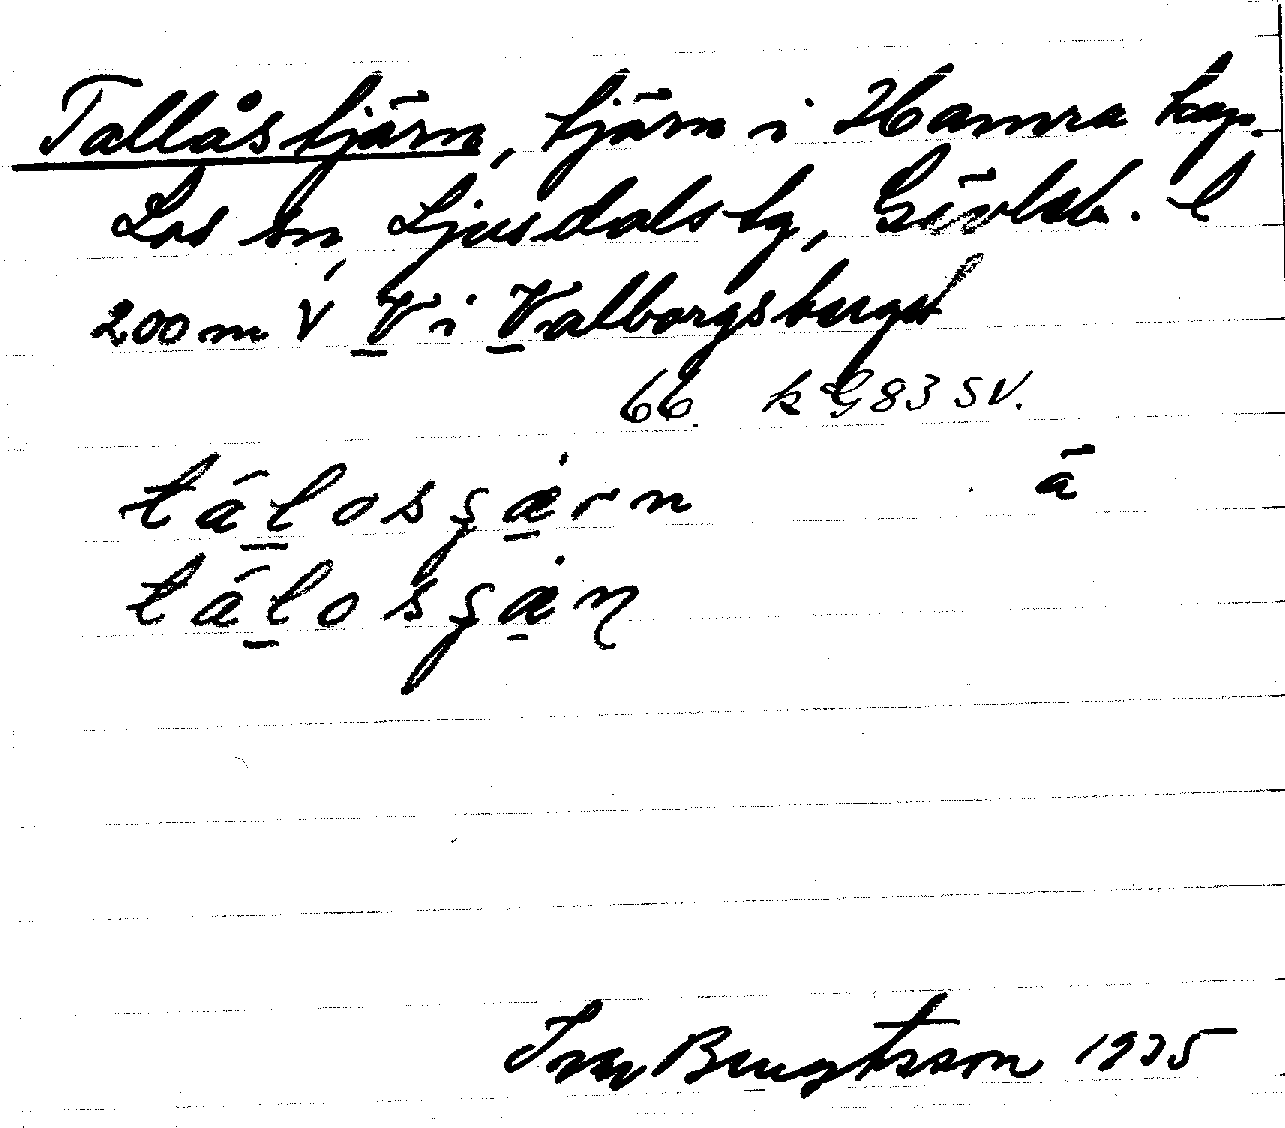 Tallåstjärn, tjärn i Hamra kap.
Los sn, Ljusdals tg, Gävleb. l
200 m V V i Valborgsberget
66. k G 83 SV.
tálosʂärn ā
tálosʂäɳ
Bengtsson 1935